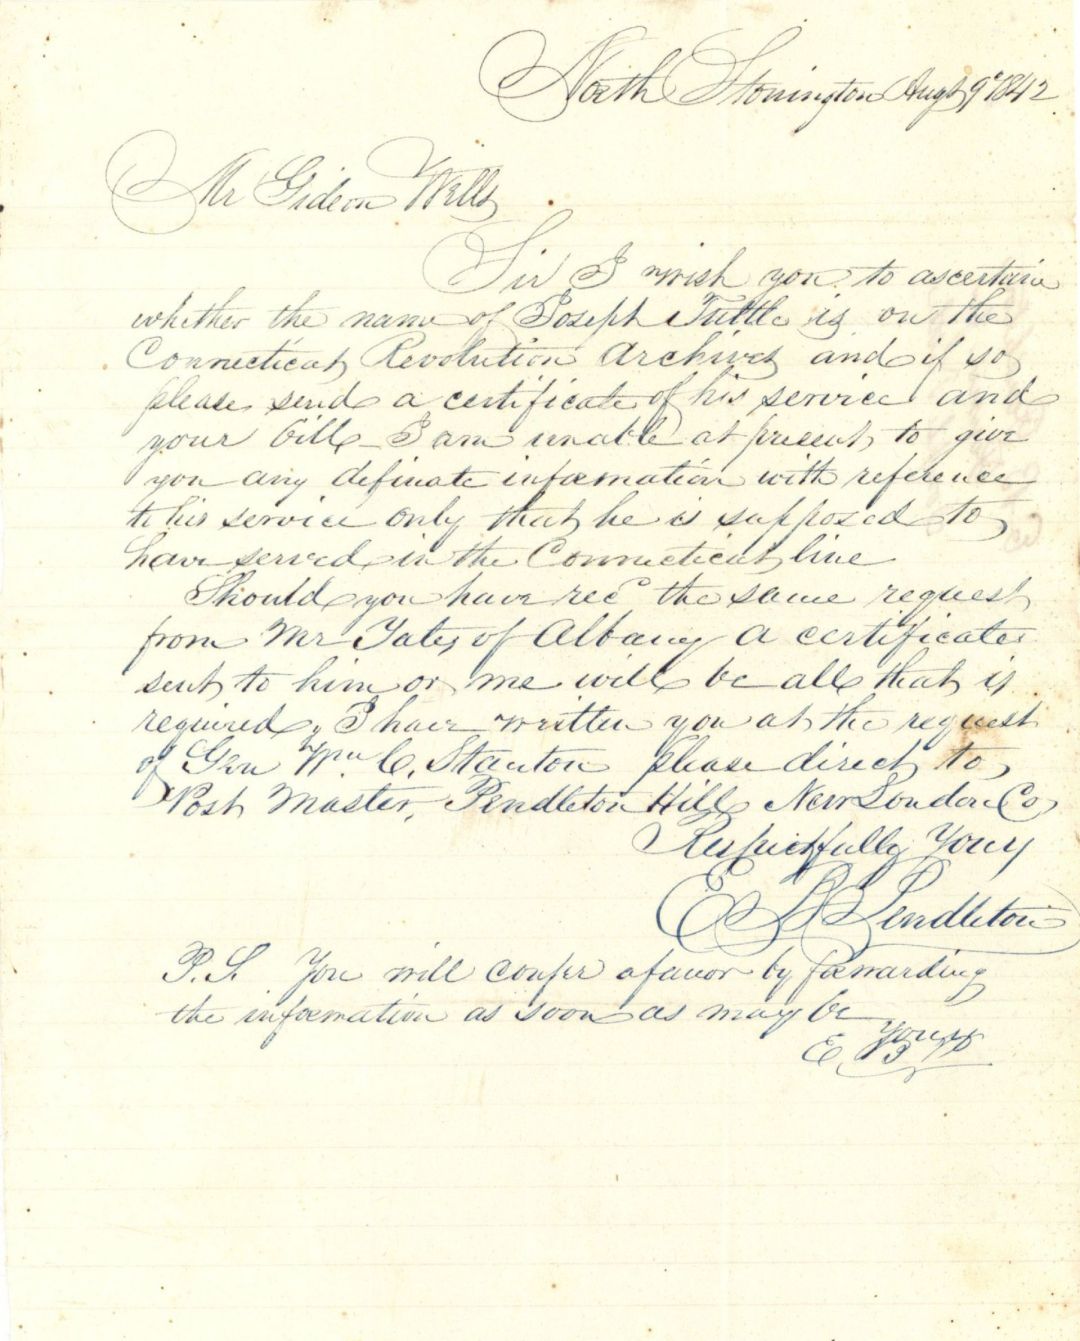 North Stonington Augt 9th 1842
Mr Gideon Wells
Sir I wish you to ascertain
whether the name of Joseph Tuttle is on the
Connecticut Revolution Archives and if so
please send a certificate of his service and
your bill I am unable at present to give
you any definate information with reference
to his service only that he is supposed to
have served in the Connecticut line
Should you have recd the same request
from Mr Yates of Albany a certificate
sent to him or me will be all that is
required, I have written you at the request
of Gen Wm C. Stanton please direct to
Post Master, Pendleton Hill New London Co
Respectfully Yours
E B Pendleton
P.S. You will confer a favor by forwarding
the information as soon as may be
Yours
E B P